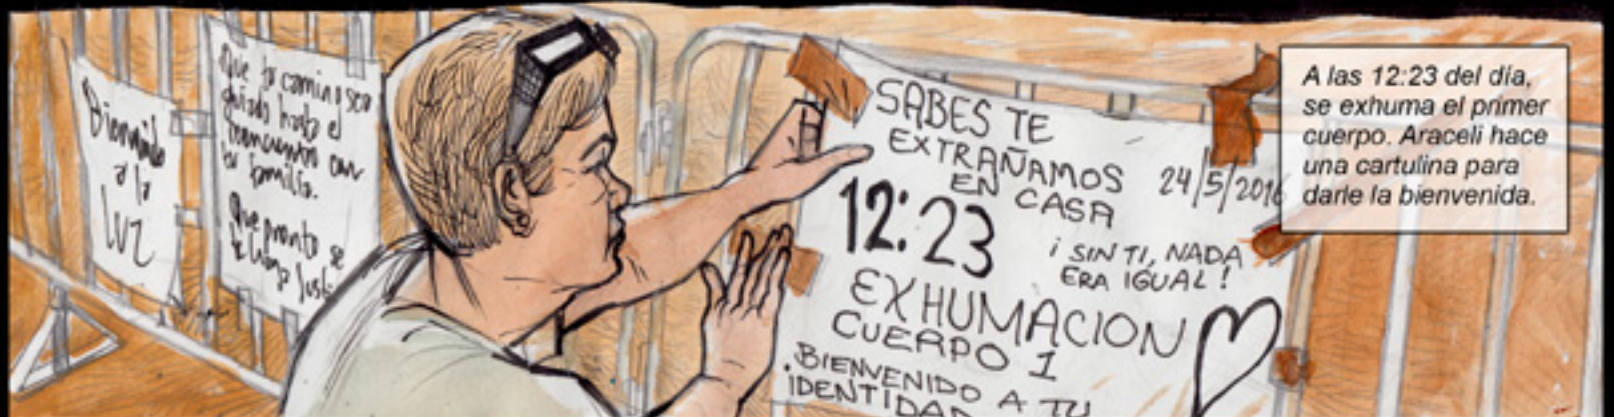 Bienvenido
a la
luz
Que tu camino sea
guiado hasta el
la familia.
Que pronto se
SABES TE
EXTRAÑAMOS
EN
CASA
24/5/2016
12:23
¡SIN TI, NADA
ERA IGUAL!
EXHUMACION
CUERPO 1
BIENVENIDO A TU
IDENTIDAD
A las 12:23 del día,
se exhuma el primer
cuerpo. Araceli hace
una cartulina para
darle la bienvenida.